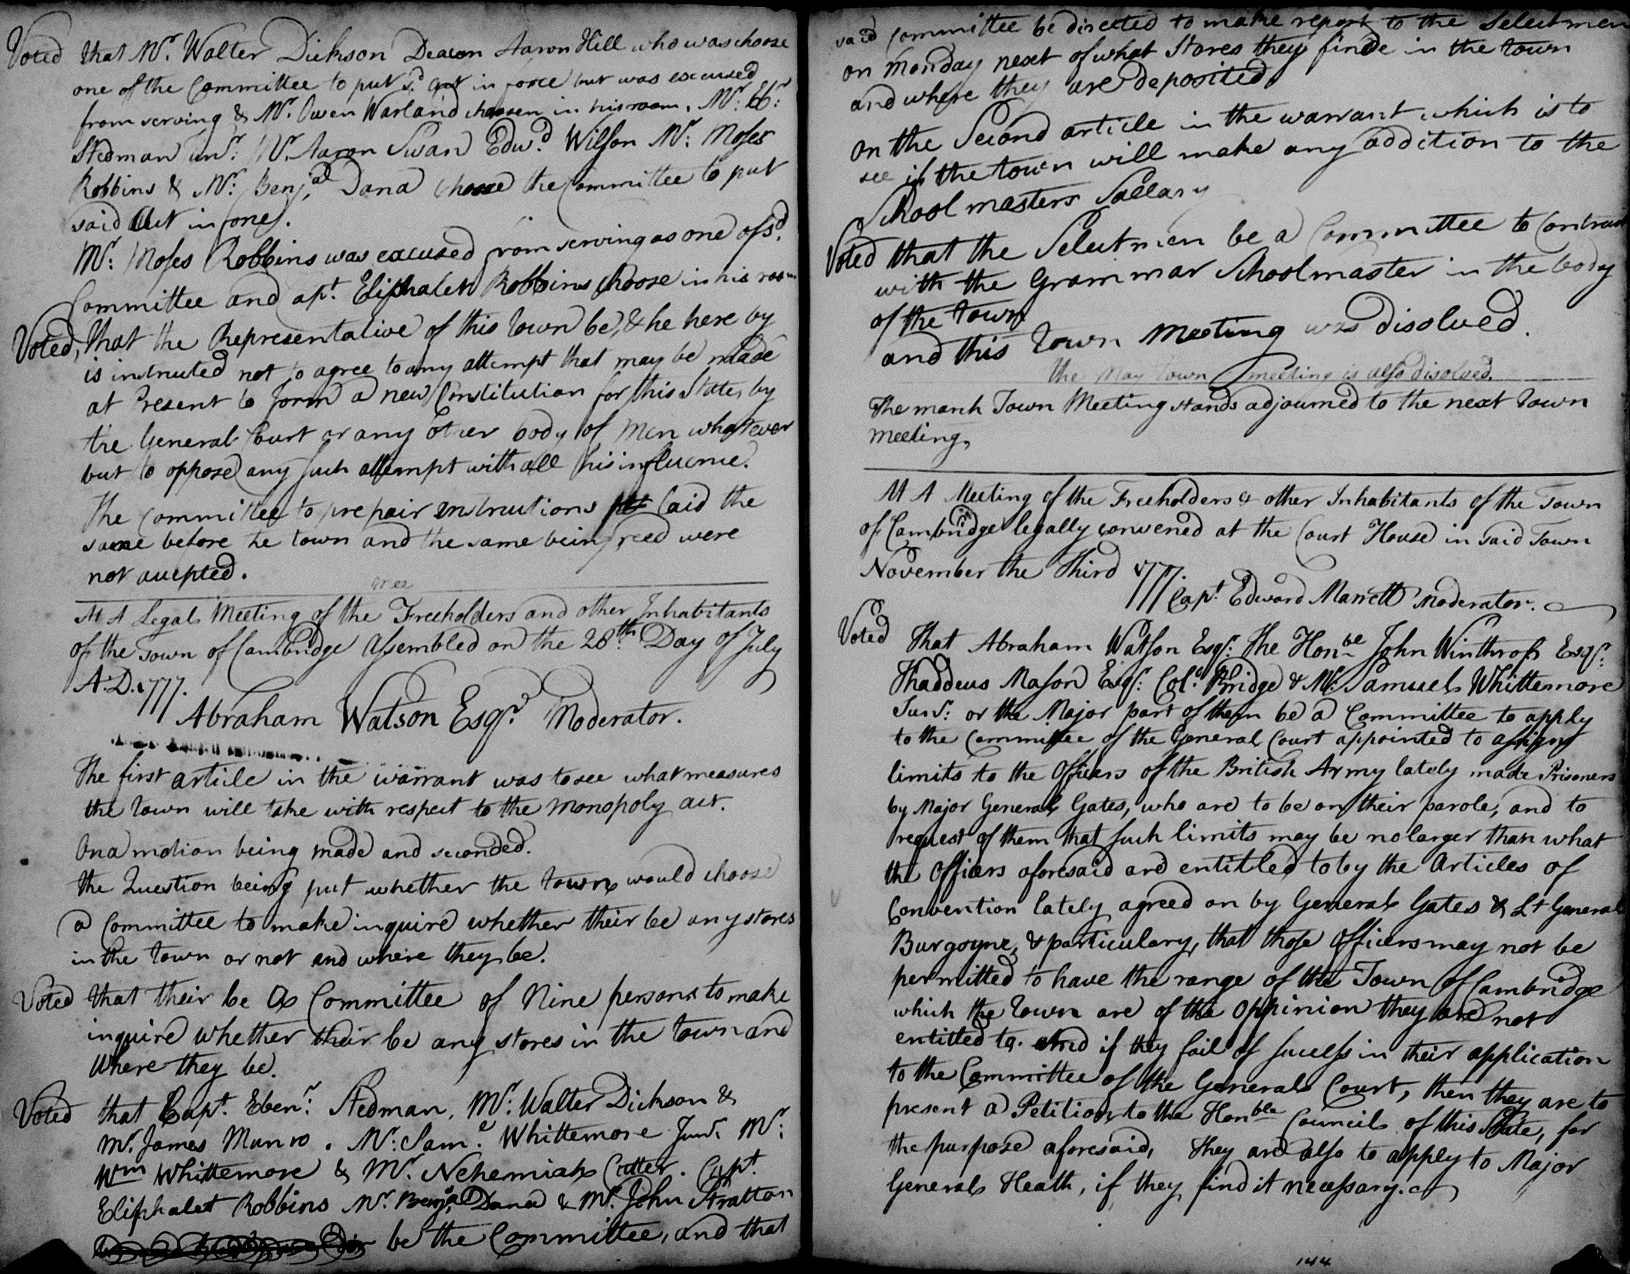 Voted that Mr. Walter Dickson Deacon Aaron Hill who was choose
one of the Committee to put sd. act in force but was excused
from serving & Mr. Owen Warland choosen in his room. Mr. Ebr.
Stedman Junr. Mr. Aaron Swan Edwd. Wilson Mr. Moses
Robbins & Mr. Benjal. Dana choose the Committee to put
said Act in force.
Mr. Moses Robbins was excused from serving as one of sd.
Committee and apt. Eliphalet Robbins choose in his room
Voted, That the Representative of this Town be, & he here by
is instructed not to agree to any attempt that may be made
at Present to form a new Constitution for this State, by
the General Court or any other body of Men whatever
but to oppose any such attempt with all his influence.
The committee to prepair instructions Laid the
same before he town and the same being reed were
not accepted.
At A Legal Meeting of the Freeholders and other Inhabitants
of the Town of Cambridge Assembled on the 28th Day of July
A.D. 1777.
Abraham Watson Esqr. Moderator.
The first article in the warrant was to see what measures
the Town will take with respect to the Monopoly act.
On a motion being made and seconded.
the Question being put whether the town would choose
a Committee to make inquire whether their be any stores
in the Town or not and where they be.
Voted that their be a Committee of Nine persons to make
inquire whether their be any stores in the Town and
Where they be.
Voted that Capt. Ebenr. Stedman, Mr. Walter Dickson &
Mr. James Munro. Mr. Same. Whittemore Junr. Mr.
Wm Whittemore & Mr. Nehemiah Cutter. Capt.
Eliphalet Robbins Mr. Benja. Dana & Mr. John Stratton
be the Committee, and that
said Committee be directed to make report to the Selectmen
on Monday next of what Stores they finde in the town
and where they are deposited
on the Second article in the warrant which is to
see if the town will make any addition to the
School masters Sallary
Voted that the Selectmen be a Committee to Contract
with the Grammar Schoolmaster in the body
of the town
and this Town Meeting was disolved.
the May Town meeting is also disolved.
The march Town Meeting stands adjourned to the next Town
meeting,
At A Meeting of the Freeholders & other Inhabitants of the Town
of Cambridge legally convened at the Court House in said Town
November the Third 1777.
Capt. Edward Marrett Moderator.
Voted That Abraham Watson Esqr. The Honble John Winthrop Esqr.
Thaddeus Mason Esqr. Col. Bridge & Mr. Samuel Whittemore
Junr. or the Major part of them be a Committee to apply
to the Committee of the General Court appointed to assign
limits to the Officers of the British Army lately made Prisoners
by Major General Gates, who are to be on their parole, and to
request of them that such limits may be no larger than what
the Officers aforesaid are entitled to by the Articles of
Convention lately agreed on by General Gates & Lt General
Burgoyne, & particulary, that those Officers may not be
permitted to have the range of the Town of Cambridge
which the Town are of the Oppinion they are not
entitled to. And if they fail of success in their application
to the Committee of the General Court, then they are to
present a Petition to the Honble Council of this State, for
the purpose aforesaid, they are also to apply to Major
General Heath, if they find it necessary.
144